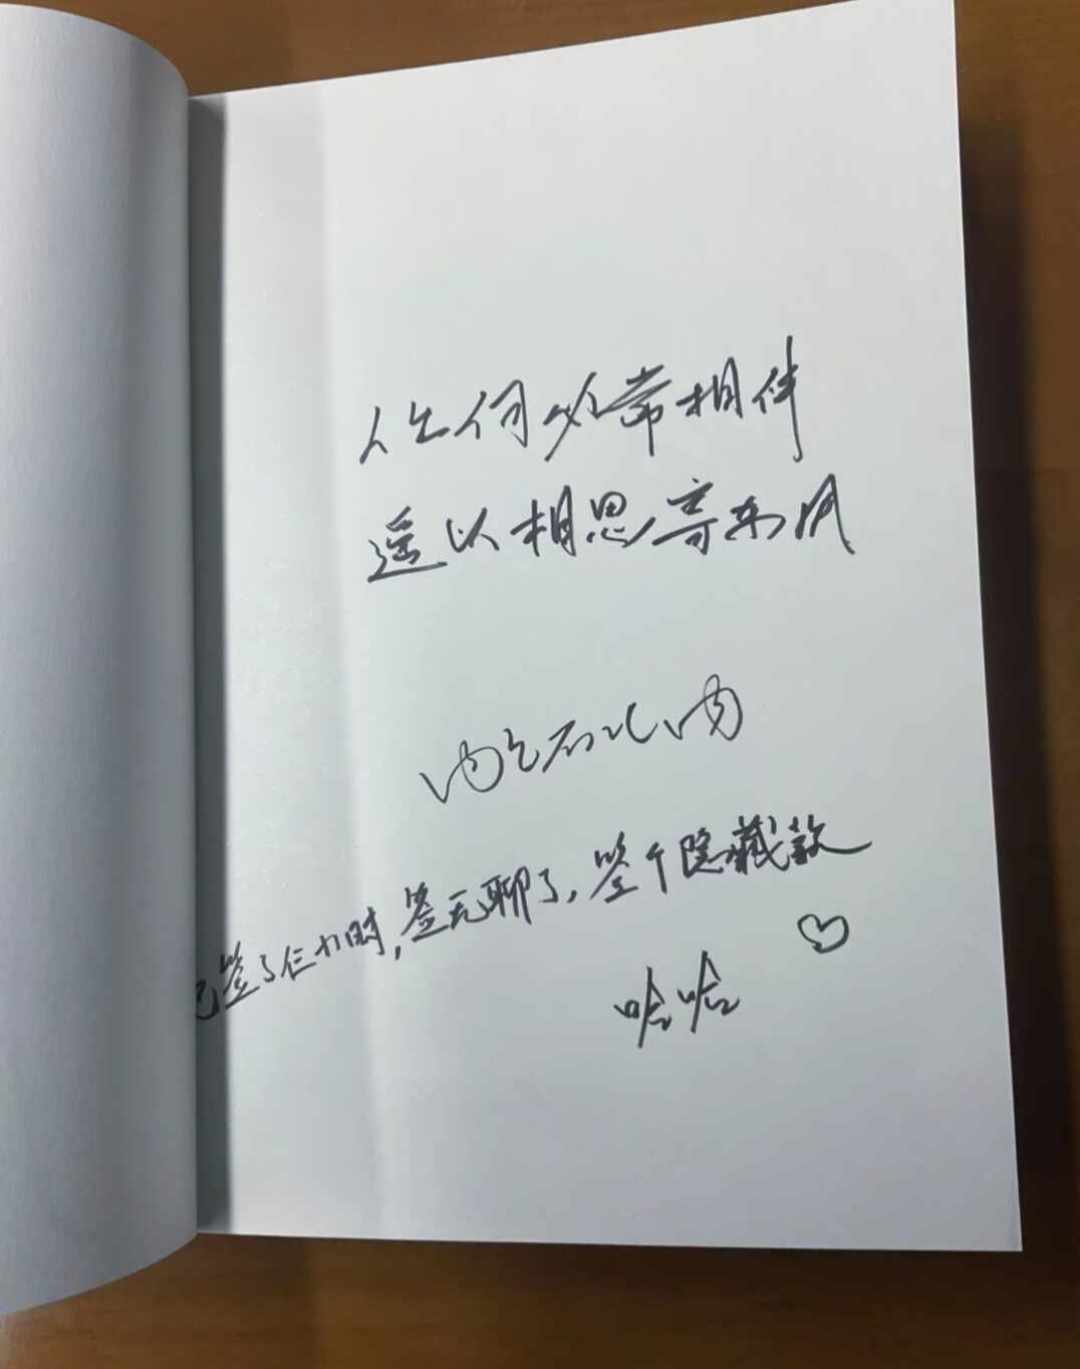 人生何必常相伴
遥以相思寄东风
已签了仨小时，签无聊了，签个隐藏款
哈哈